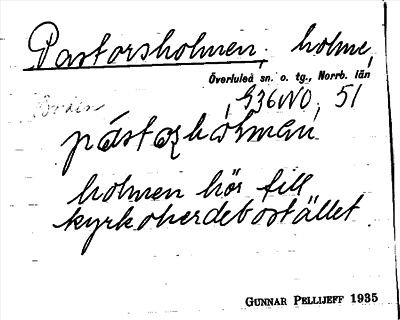 Pastorsholmen, holme,
Överluleå sn. o. tg., Norrb. län
Boden
S36NO, 51
pástașhólmen,
holmen hör till
kyrkoherdebostället.
GUNNAR PELLIJEFF 1935